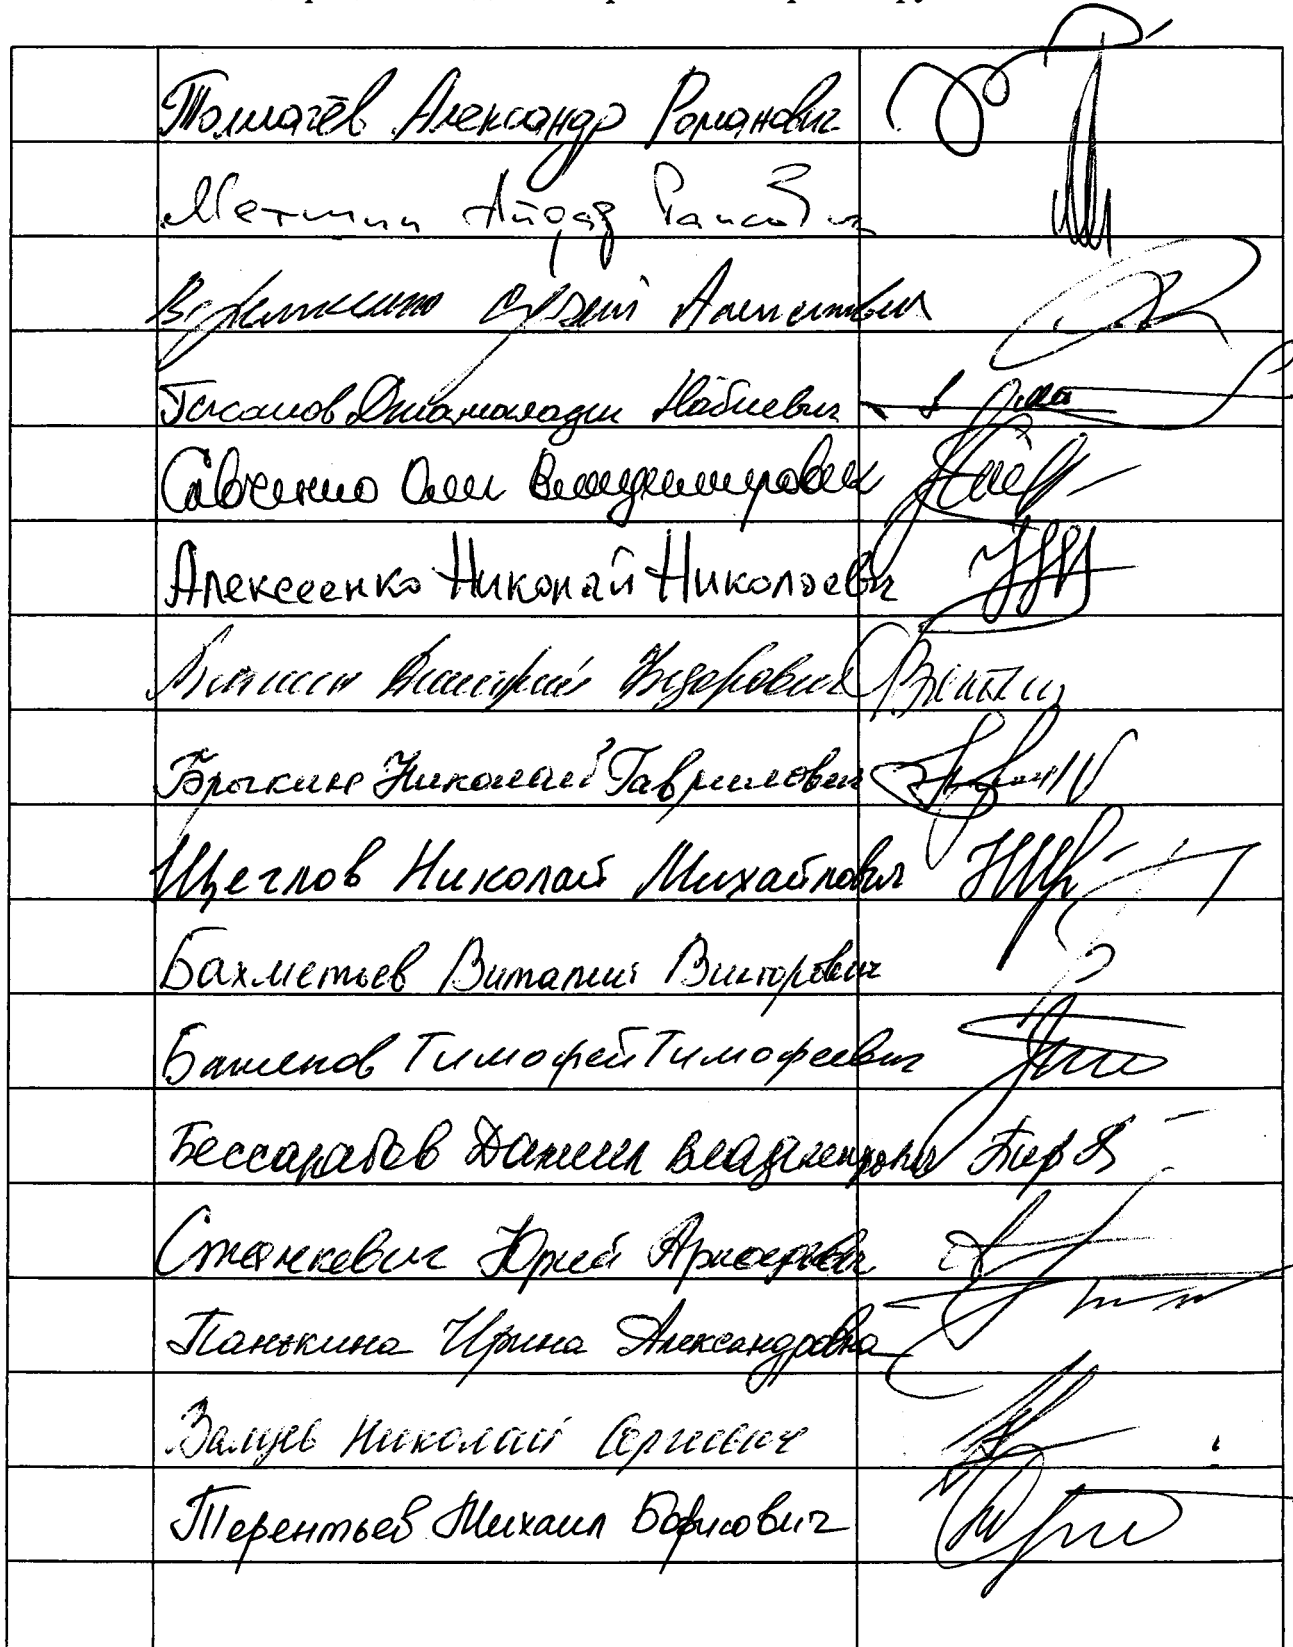 Толмачёв Александр Романович
Метшин Айдар Раисович
Веремеенко Сергей Алексеевич
Гасанов Джамаладин Набиевич
Савченко Олег Владимирович
Алексеенко Николай Николаевич
Вяткин Дмитрий Фёдорович Вяткин
Брыкин Николай Гаврилович
Щеглов Николай Михайлович
Бахметьев Виталий Викторович
Баженов Тимофей Тимофеевич
Бессарабов Даниил Владимирович
Станкевич Юрий Аркадьевич
Панькина Ирина Александровна
Валуев Николай Сергеевич
Терентьев Михаил Борисович